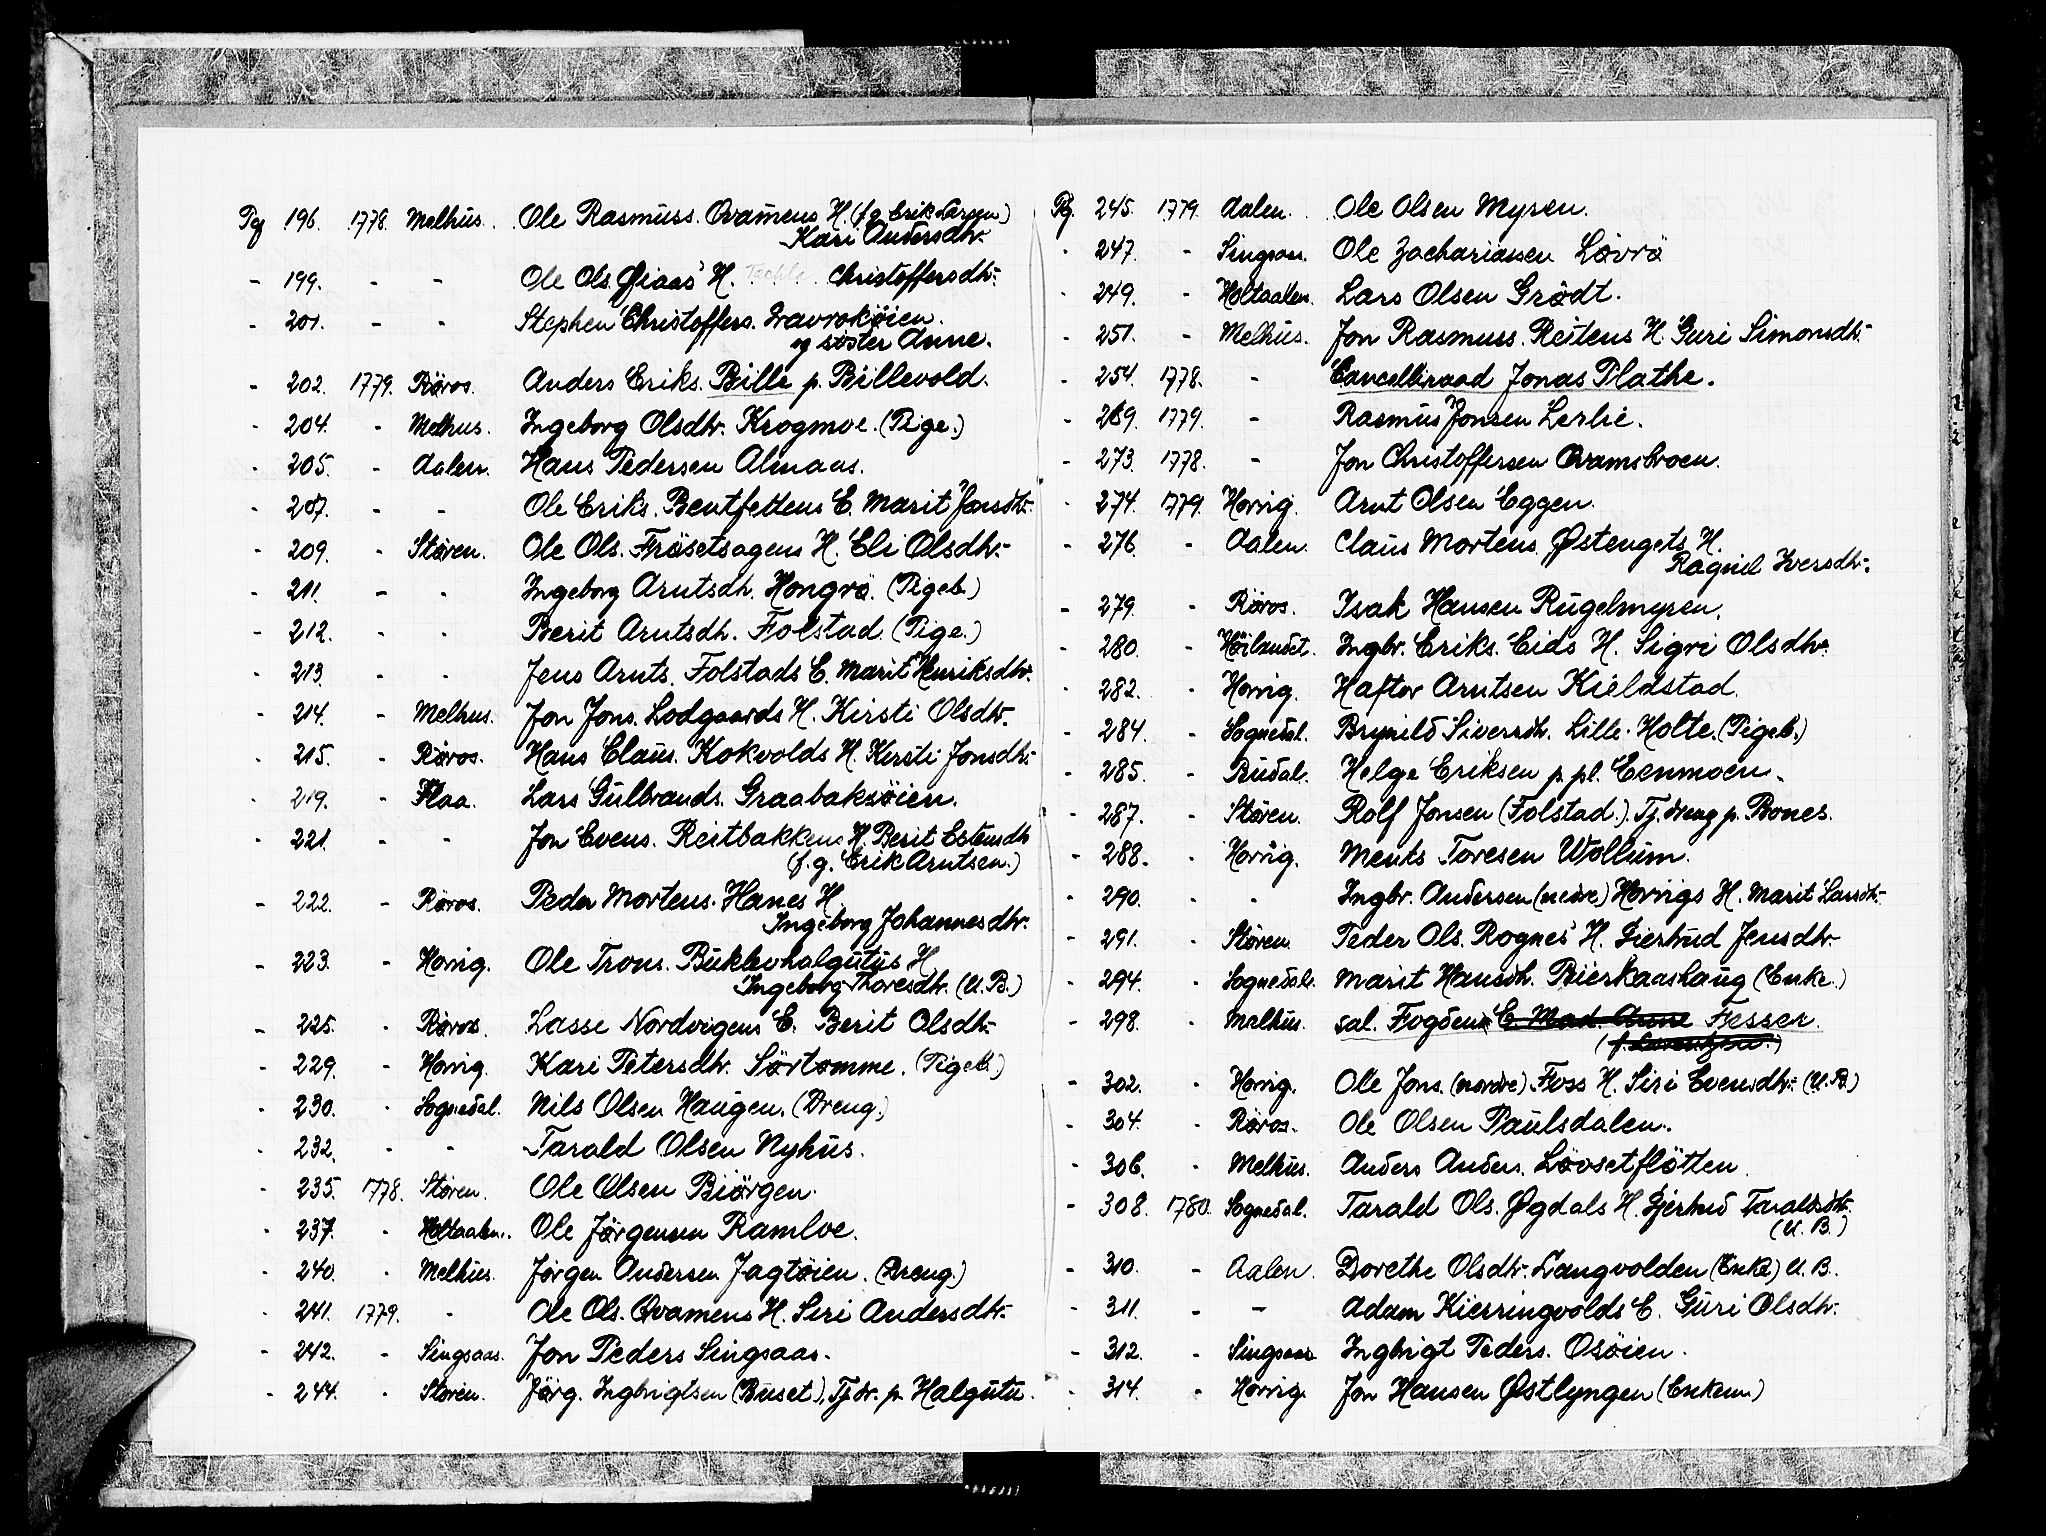 Pg 196. 1778. Melhus. Ole Rasmuss. Qvamens H. (f.g. Erik Larsen)
Kari Andersdtr.
- 199. - - Ole Ols. Øiaas' H. Christoffersdtr.
- 201. - - Stephen Christoffers. Gravrokøien.
og søster Anne.
- 202. 1779. Röros. Anders Eriks. Bille p. Billevold.
- 204. - Melhus. Ingeborg Olsdtr. Krogmoe. (Pige.)
- 205. - Aalen. Hans Pedersen Almaas.
- 207. - - Ole Eriks. Bentfettens E. Marit Jonsdtr.
- 209. - Støren. Ole Ols. Frøsetsagens H. Eli Olsdtr.
- 211. - - Ingeborg Arntsdtr. Hongrø. (Pigeb.)
- 212. - - Berit Arntsdtr. Folstad. (Pige.)
- 213. - - Jens Arnts. Folstads E. Marit Henriksdtr.
- 214. - Melhus. Jon Jons. Lodgaards H. Kirsti Olsdtr.
- 215. - Röros. Hans Claus. Kokvolds H. Kersti Jonsdtr.
- 219. - Flaa. Lars Gulbrands. Graabakøien.
- 221. - - Jon Evens. Reitbakkens H. Berit Estensdtr
(f.g. Erik Arntsen.)
- 222. - Röros. Peder Mortens. Hanes H.
Ingeborg Johannesdtr.
- 223. - Horrig. Ole Trons. Bukhvhalgutus H
Ingeborg Thoresdtr. (U.B.)
- 225. - Röros. Lasse Nordvigens E. Berit Olsdtr.
- 229. - Horrig. Kari Petersdtr. Sørtømme. (Pigeb.)
- 230. - Sognedal. Nils Olsen Haugen. (Dreng.)
- 232. - - Tarald Olsen Nyhus.
- 235. 1778. Støren. Ole Olsen Biörgen.
- 237. - Holtaalen. Ole Jørgensen Ramloe.
- 240. - Melhus. Jørgen Andersen Jagtøien. (Dreng.)
- 241. 1779. - Ole Ols. Qvamens H. Siri Andersdtr.
- 242. - Singsaas. Jon Peders Singsaas.
- 244. - Støren. Jörg. Ingbrigtsen (Buset), Tj.dr. p. Halgutu.
Pg. 245. 1779. Aalen. Ole Olsen Mysen.
- 247. - Singsaas. Ole Zachariassen Løvrö
- 249. - Holtaalen. Lars Olsen Grødt.
- 251. - Melhus. Jon Rasmuss. Reitens H. Guri Simonsdtr.
- 254. 1778. - Cancelliraad Jonas Plathe.
- 269. 1779. - Rasmus Jonsen Lerlie.
- 273. 1778. - Jon Christoffersen Qvamsbroen.
- 274. 1779. Horrig. Arnt Olsen Eggen.
- 276. - Aalen. Claus Mortens. Østengets H.
Ragnil Iversdtr.
- 279. - Röros. Isak Hansen Rugelmyren.
- 280. - Höilandet. Ingbr. Eriks. Eids H. Sigri Olsdtr.
- 282. - Horrig. Haftor Arntsen Kieldstad.
- 284. - Sognedal. Brynild Siversdtr. Lille-Holte. (Pigeb.)
- 285. - Budal. Helge Eriksen p. pl. Eenmoen.
- 287. - Støren. Rolf Jonsen (Folstad). Tj.dreng p. Bones.
- 288. - Horrig. Ments Toresen Wollum.
- 290. - - Ingbr. Andersen (nedre) Horrigs H. Marit Larsdtr.
- 291. - Støren. Peder Ols. Rognes' H. Giertrud Jensdtr.
- 294. - Sognedal. Marit Hansdtr. Bierkaashaug (Enke.)
- 298. - Melhus. sal. Fogden E. Mad. Anne Fesser.
- 302. - Horrig. Ole Jons. (nordre) Foss H. Siri Evensdtr. (U.B.)
- 304. - Röros. Ole Olsen Paulsdalen.
- 306. - Melhus. Anders Anders. Lövsetflötten.
- 308. 1780. Sognedal. Tarald Ols. Øgdals H. Gjertrud Taraldsdtr.
(U.B.)
- 310. - Aalen. Dorethe Olsdtr. Langvolden (Enke) U.B.
- 311. - - Adam Kierringvolds E. Guri Olsdtr.
- 312. - Singsaas Ingbrigt Peders. Osøien.
- 314. - Horrig. Jon Hansen Østlyngen (Enkem.)